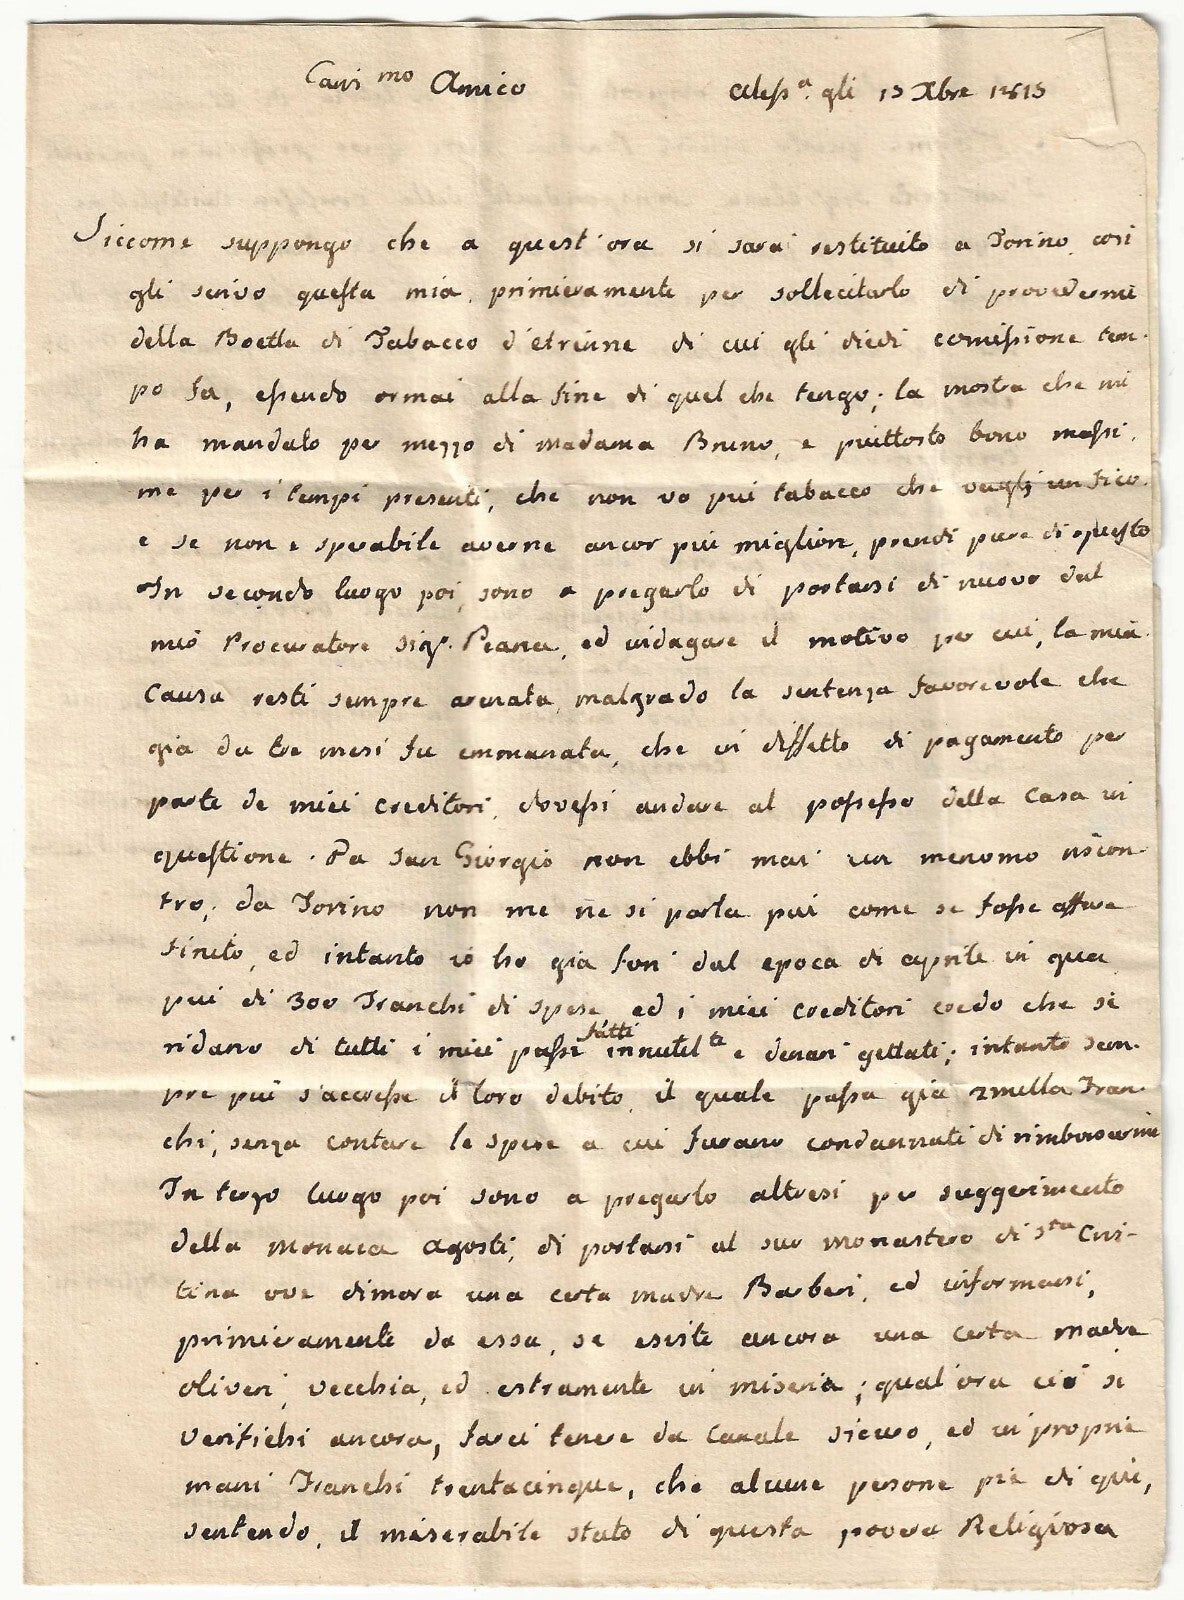 Cariᵐᵒ Amico
Alessᵃ. gli 13 Xbre 1813
Siccome suppongo che a quest'ora si sarà restituito a Torino, così
gli scrivo questa mia, primieramente per sollecitarlo di provedermi
della Boetta di Tabacco d'etrinne di cui gli diedi comissione tem-
po fa, essendo ormai alla fine di quel che tengo; la mostra che mi
ha mandato per mezzo di madama Bruno, e piuttosto bono massi-
me per i tempi presenti, che non vo più tabacco che vagli un fico
e se non e sperabile averne ancor più miglior, prendi pure di questo
In secondo luogo poi, sono a pregarlo di portarsi di nuovo dal
mio Procuratore Sigʳ. Peana, ed indagare il motivo per cui, la mia
Causa resti sempre arenata, malgrado la sentenza favorevole che
già da tre mesi fu emmanata, che in diffetto di pagamento per
parte de miei creditori, dovessi andare al possesso della Casa in
questione. Da San Giorgio non ebbi mai un menomo riscon-
tro; da Torino non me ne si parla più come se fosse affare
finito, ed intanto io ho già fori dal epoca di aprile in qua
più di 300 Franchi di spese, ed i miei creditori credo che si
ridano di tutti i miei passi fatti innutilᵗᵉ e denari gettati; intanto sem-
pre più s'accresse il loro debito, il quale passa già 2mella Fran-
chi, senza contare le spese a cui furano condannati di rimborsarmi
In terzo luogo poi sono a pregarlo altresì per suggerimento
della monaca Agosti, di portarsi al suo monastero di Sᵗᵃ Cris-
tina ove dimora una certa madre Barberi, ed informarsi,
primieramente da essa, se esiste ancora una certa madre
Oliveri, vecchia, ed estramente in miseria; qual'ora ciò si
verifichi ancora, farci tenere da Canale sicuro, ed in proprie
mani Franchi trentacinque, che alcune persone pie di qui,
sentendo, il miserabile stato di questa povera Religiosa